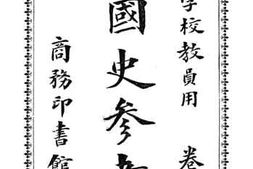 學校教員用 卷
國史参
商務印書館